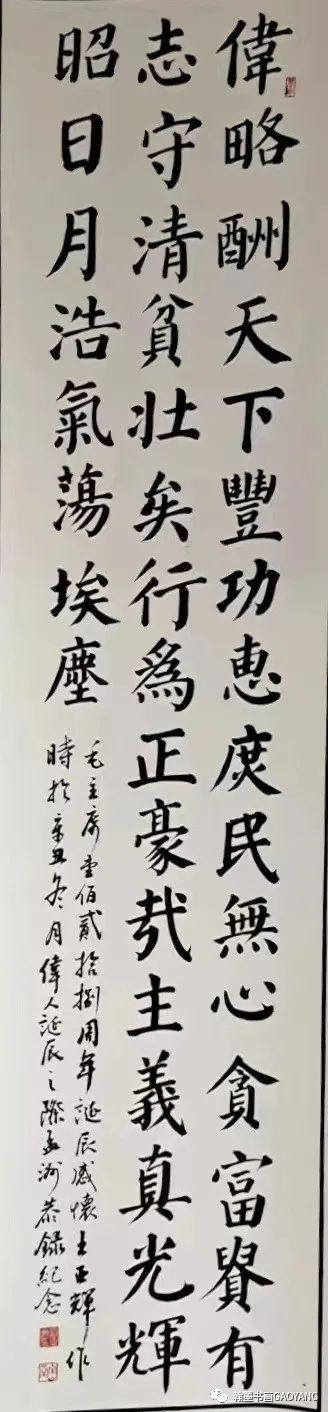 偉略酬天下豐功惠庶民無心貪富貴有
志守清貧壯矣行爲正豪哉主義真光輝
昭日月浩氣蕩埃塵
毛主席壹佰貳拾捌周年誕辰感懷王亚輝作
時於辛丑冬月偉人誕辰之際恭錄紀念
翰墨书画GAOYANG